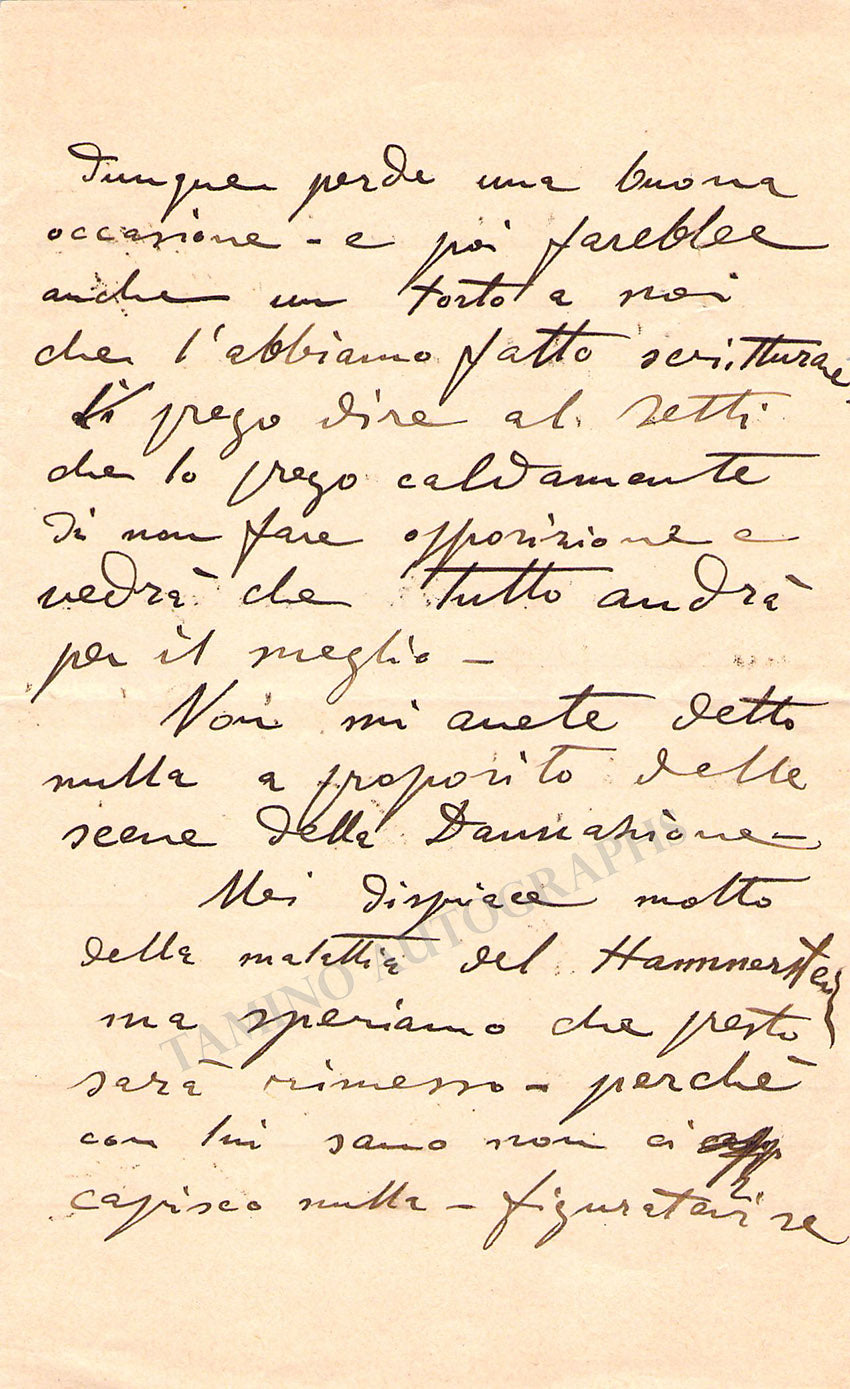 Dunque perde una buona
occasione - e poi farebbe
anche un torto a noi
che l'abbiamo fatto scritturare.
Vi prego dire al Setti
che lo prego caldamente
di non fare opposizione e
vedrà che tutto andrà
per il meglio -
Non mi avete detto
nulla a proposito delle
scene della Dannazione -
Mi dispiace molto
della malattia del Hammerstein
ma speriamo che presto
sarà rimesso - perchè
con lui sano non ci
capisco nulla - figuratevi se
TAMINO AUTOGRAPHS